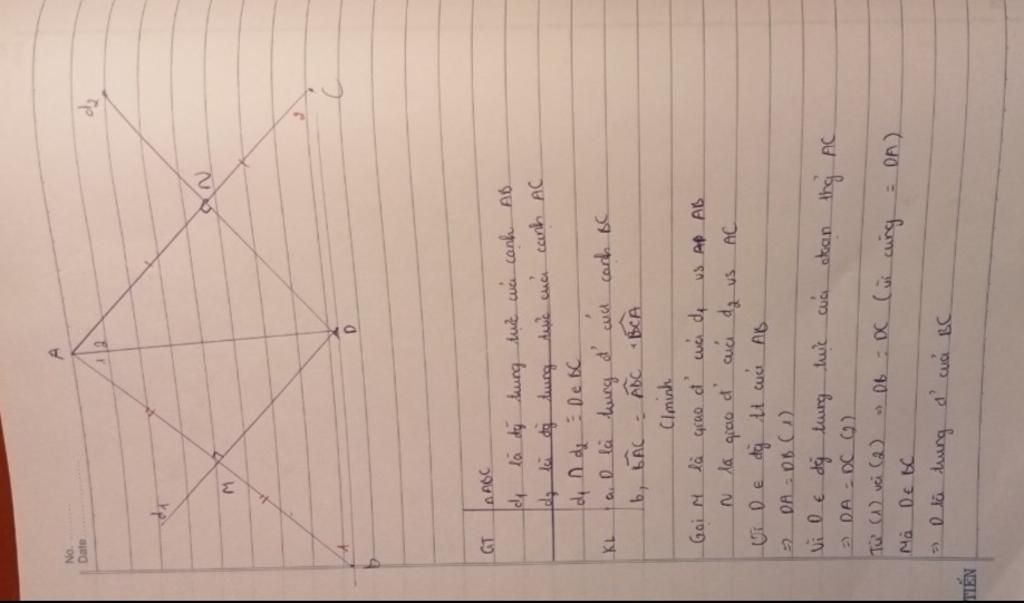 No.
Date
A
1 2
d1
d2
M
N
b
1
D
C
2
GT
ΔABC
d1 là đg trung trực của cạnh AB
d2 là đg trung trực của cạnh AC
d1 ∩ d2 = D ∈ BC
KL
a, D là trung đ' của cạnh BC
b, bAC = ABC + BCA
C/minh
Gọi M là giao đ' của d1 vs AB
N là giao đ' của d2 vs AC
Vì D ∈ đg tt của AB
=> DA = DB (1)
Vì D ∈ đg trung trực của đoạn thg AC
=> DA = DC (2)
Từ (1) và (2) => DB = DC (vì cùng = DA)
Mà D ∈ BC
=> D là trung đ' của BC
TIẾN